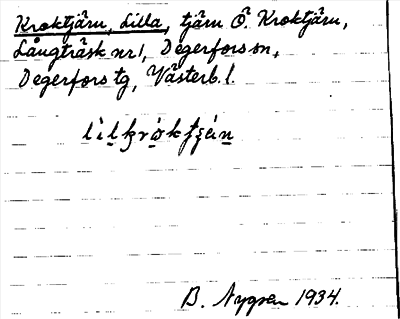 Kroktjärn, Lilla, tjärn Ö. Kroktjärn,
Långträsk nr 1, Degerfors sn,
Degerfors tg, Västerb. l.
B. Nygren 1934.